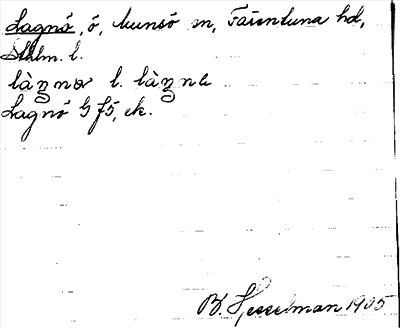 Lagnö, ö, Munsö sn, Färentuna hd,
Sthlm. l.
làŋnø l. làŋnɩ
Lagnö G f5, ek.
B. Hesselman 1905